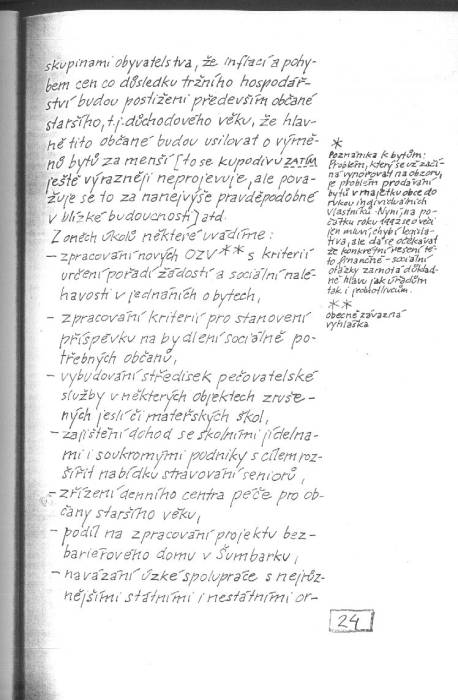 skupinami obyvatelstva, že inflací a pohy-
bem cen co důsledku tržního hospodář-
ství budou postiženi především občané
staršího, t.j. důchodového věku, že hlav-
ně tito občané budou usilovat o výmě-
nů bytů za menší [to se kupodivu ZATÍM
ještě výrazněji neprojevuje, ale pova-
žuje se to za nanejvýše pravděpodobné
v blízké budoucnosti] atd.
Z oněch úkolů některé uvádíme:
- zpracování nových OZV** s kriterií
určení pořadí žádostí a sociální nalé-
havosti v jednáních o bytech,
- zpracování kriterií pro stanovení
příspěvku na bydlení sociálně po-
třebných občanů,
- vybudování středisek pečovatelské
služby v některých objektech zruše-
ných jeslí či mateřských škol,
- zajištění dohod se školními jídelna-
mi i soukromými podniky s cílem roz-
šířit nabídku stravování seniorů,
- zřízení denního centra péče pro ob-
čany staršího věku,
- podíl na zpracování projektu bez-
bariérového domu v Šumbarku,
- navázání úzké spolupráce s nejrůz-
nějšími státními i nestátními or-
*
Poznámka k bytům:
Problém, který se už začí-
ná vynořovat na obzory,
je problém prodávání
bytů v majetku obce do
rukou individuálních
vlastníků. Nyní, na po-
čátku roku se o věci
jen mluví, chybí legisla-
tiva, ale dá se očekávat
že konkrétní řešení té-
to finančně - sociální
otázky zamotá důklad-
ně hlavu jak úřadům
tak i jednotlivcům.
**
obecně závazná
vyhláška
24